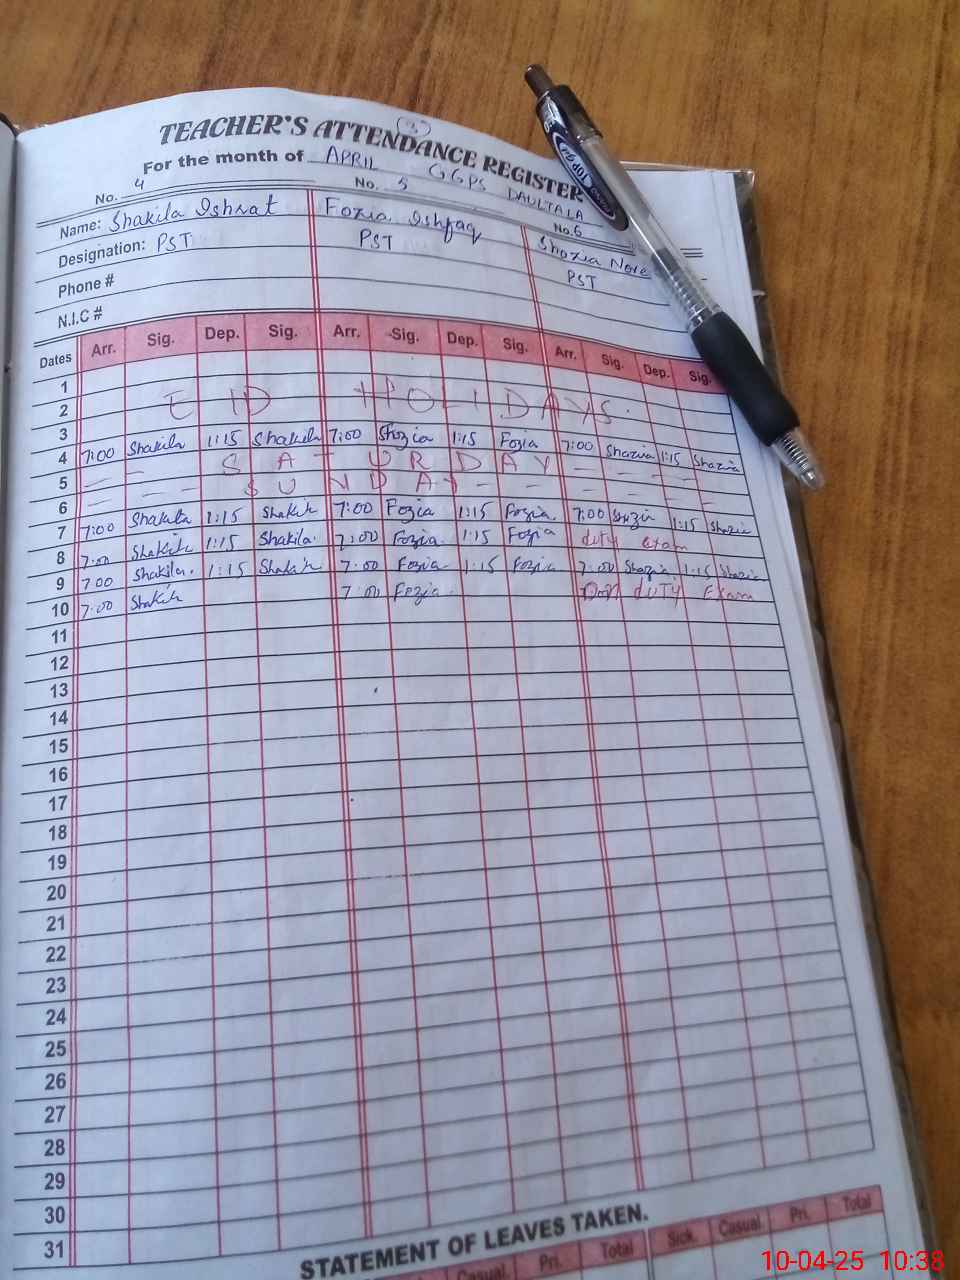 (3)
TEACHER'S ATTENDANCE REGISTER
For the month of APRIL GGPS DAULTALA
No. 4 No. 5 No. 6
Name: Shakila Ishrat Fozia Ishfaq Shozia Nore
Designation: PST PST PST
Phone #
N.I.C #
Dates Arr. Sig. Dep. Sig. Arr. Sig. Dep. Sig. Arr. Sig. Dep. Sig.
1
2 EID HOLIDAYS.
3
4 7:00 Shakila 1:15 Shakila 7:00 Shozia 1:15 Fozia 7:00 Shazia 1:15 Shazia
5 SATURDAY
6 SUNDAY
7 7:00 Shakila 1:15 Shakila 7:00 Fozia 1:15 Fozia 7:00 Shazia 1:15 Shazia
8 7:00 Shakila 1:15 Shakila. 7:00 Fozia 1:15 Fozia duty exam
9 7:00 Shakila. 1:15 Shakila 7:00 Fozia 1:15 Fozia 7:00 Shazia 1:15 Shazia
10 7:00 Shakila 7:00 Fozia. On duty Exam
11
12
13
14
15
16
17
18
19
20
21
22
23
24
25
26
27
28
29
30
31
STATEMENT OF LEAVES TAKEN.
Casual Pri. Total Sick. Casual. Pri. Total
10-04-25 10:38